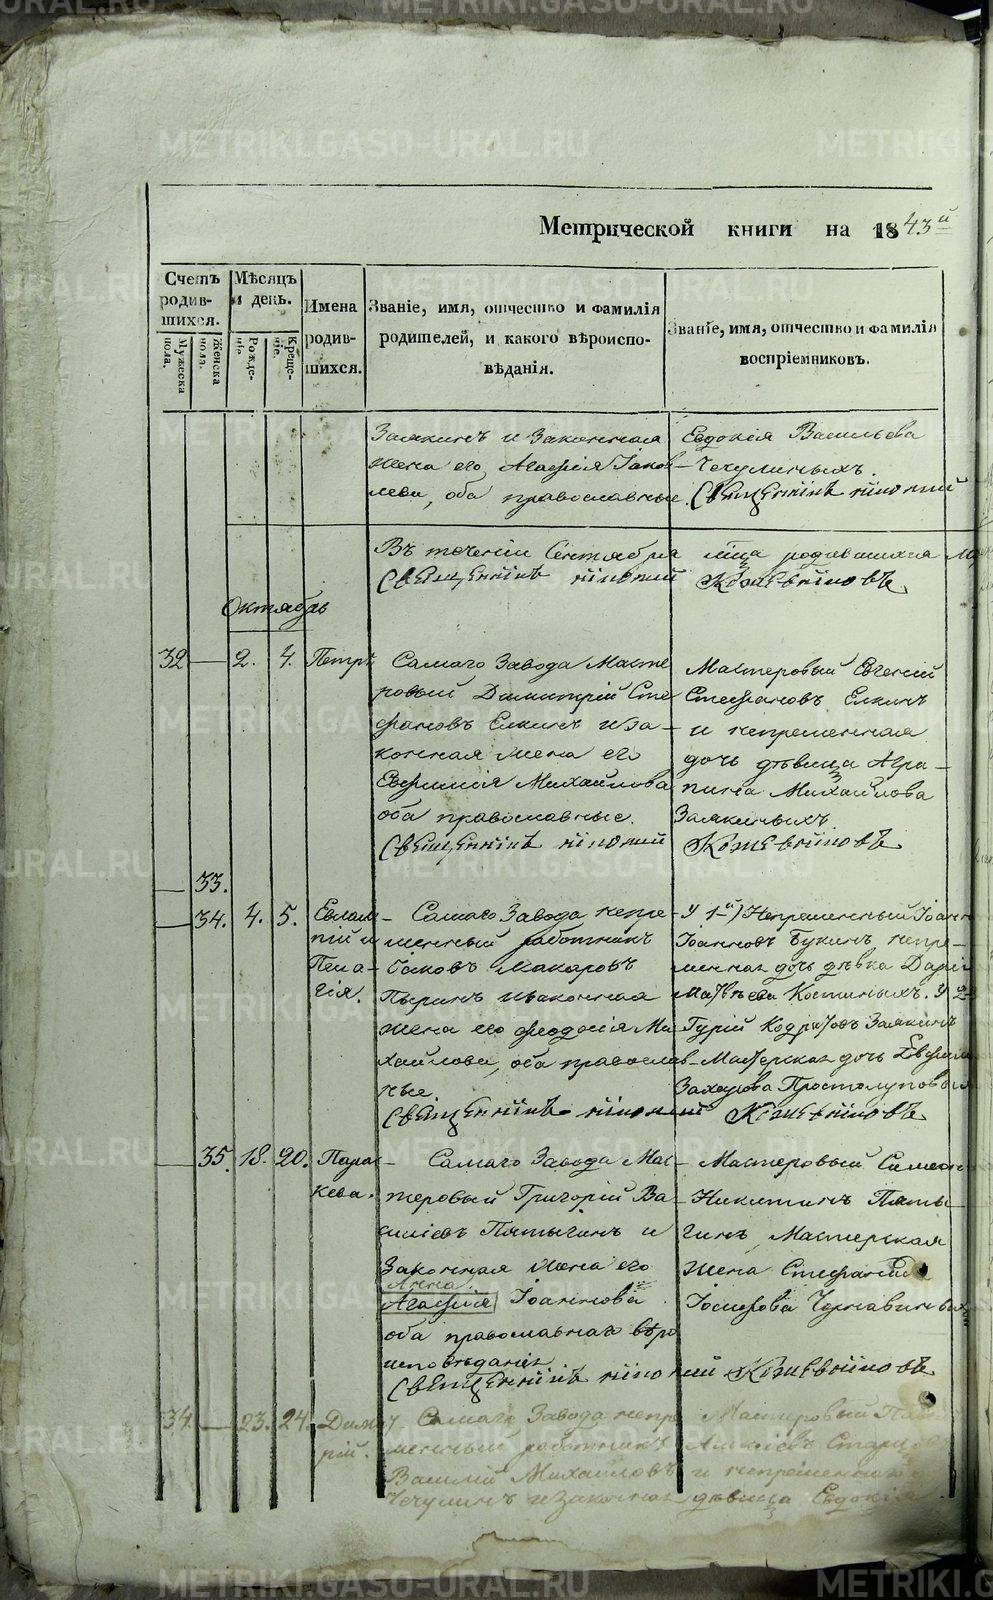 METRIKI.GASO-URAL.RU
Метрической книги на 1843й
Счетъ родив-шихся.
Мужеска пола.
Женска пола.
Мѣсяцъ и день.
Рожде-ніе.
Креще-ніе.
Имена родив-шихся.
Званіе, имя, отчество и фамилія
родителей, и какого вѣроиспо-
вѣданія.
Званіе, имя, отчество и фамилія
воспріемниковъ.
Заякинъ и законная
жена его Агафія Іаков-
лева, оба православные.
Евдокія Васильева
Чечулиныхъ.
Священникъ
Въ теченіи Сентября мѣсяца родившихся
Священникъ Кожевниковъ
Октябрь
32 — 2. 4. Петръ
Самаго Завода Масте
ровый Димитрій Сте
фановъ Елкинъ и за-
конная жена его
Евфимія Михайлова
оба православные.
Мастеровый Евгеній
Стефановъ Елкинъ
и непременная
дочь дѣвица Агра-
пина Михайлова
Заякиныхъ
Священникъ Кожевниковъ
— 33.
— 34. 4. 5. Евлам-
пій и
Пела-
гія.
Самаго Завода непре-
менный работникъ
Іаковъ Макаровъ
Пыринъ и законная
жена его Феодосія Ми
хайлова, оба православ-
ные
У 1й) Непременный Іоаннъ
Іоанновъ Букинъ, непре-
менная дочь дѣвка Дарія
Матвѣева Костиныхъ. У 2й
Гурій Кодратовъ Заякинъ
Мастерская дочь Евфимія
Захарова Простолуповыхъ
Священникъ Кожевниковъ
— 35. 18. 20. Парас-
кева.
Самаго Завода Мас-
теровый Григорій Ва-
силіевъ Пятыгинъ и
Законная жена его
Анна
Агафія Іоаннова
оба православнаго вѣро
исповѣданія
Мастеровый Симеонъ
Никитинъ Пяты-
гинъ, Мастерская
жена Стефанида
Іосифова Чернавиныхъ
Священникъ Кожевниковъ
34 — 23. 24. Димит-
рій.
Самаго Завода непре
менный работникъ
Василій Михайловъ
Чечулинъ и законная
Мастеровый
и непременнаго
дѣвица Евдокія